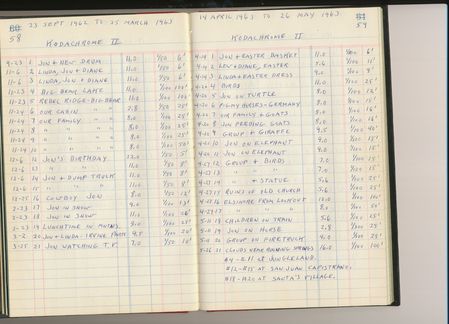 58
23 SEPT. 1962 TO 25 MARCH 1963
KODACHROME II
9-23 1 JON + NEW DRUM 11.0 1/50 6'
11-6 2 LINDA, JON + DIANE 11.0 1/50 6'
11-6 3 LINDA, JON + DIANE 11.0 6'
11-23 4 BIG BEAR LAKE 11.0 1/100 100'
11-23 5 REBEL RIDGE - BIG BEAR 11.0 1/100 100'
11-24 6 OUR CABIN 1/50 25'
11-24 7 OUR FAMILY 8.0 1/100 25'
11-24 8 " " 8.0 1/100 25'
11-24 9 " " 8.0 1/100 25'
11-24 10 " " 8.0 1/100 15'
12-6 12 JON'S BIRTHDAY 1/50 5'
12-6 13 " 11.0 1/50 8'
12-6 14 JON + DUMP TRUCK 11.0 1/50 8'
12-6 15 " " " 11.0 1/50 8'
12-25 16 COWBOY JON 8.0 1/50 12'
2-23 17 JON IN SNOW 1/100
2-23 18 JON IN SNOW 11.0 1/100
2-23 19 LUNCHTIME IN MOTNS. 1/100 25'
2-20 JON + LINDA - IRVINE PARK 9.5 1/100 20'
3-25 21 JON WATCHING T.V. 7.0 1/50 10'
14 APRIL 1963 TO 26 MAY 1963
59
KODACHROME II
4-14 1 JON + EASTER BASKET 11.0 6'
4-14 2 LEW + DIANE, EASTER 5.6 11'
4-14 3 LINDA + EASTER DRESS 9.0
4-20 4 BIRDS 11.0
4-20 5 JON ON TURTLE 8.0 12'
4-20 6 PIGMY HORSES - GERMANY 8.0 15'
4-20 7 OUR FAMILY + GOATS 8.0
4-20 8 JON FEEDING GOATS 8.0 16'
4-20 9 GROUP + GIRAFFE 9.5 40'
4-20 10 JON ON ELEPHANT 9.0 15'
4-20 11 JON ON ELEPHANT 9.0 15'
4-27 12 GROUP + BIRDS 7.0 1/100
4-27 13 " " 7.0 1/100
4-27 14 " + STATUE 5.6 1/100
4-27 15 RUINS OF OLD CHURCH 5.6 1/100 25'
4-27 16 ELSINORE FROM LOOKOUT 13.0 1/100
4-27 17 " 8.0 1/100
5-11 18 CHILDREN ON TRAIN 5.6 1/100 25'
5-11 19 JON ON HORSE 2.8 1/100 25'
5-11 20 GROUP ON FIRETRUCK 4.0 1/100 25'
5-26 21 CLOUDS NEAR BANNING 16.0 1/100 100'
#4 - #11 AT JUNGLELAND.
#12 - #15 AT SAN JUAN CAPISTRANO.
#18 - #20 AT SANTA'S VILLAGE.